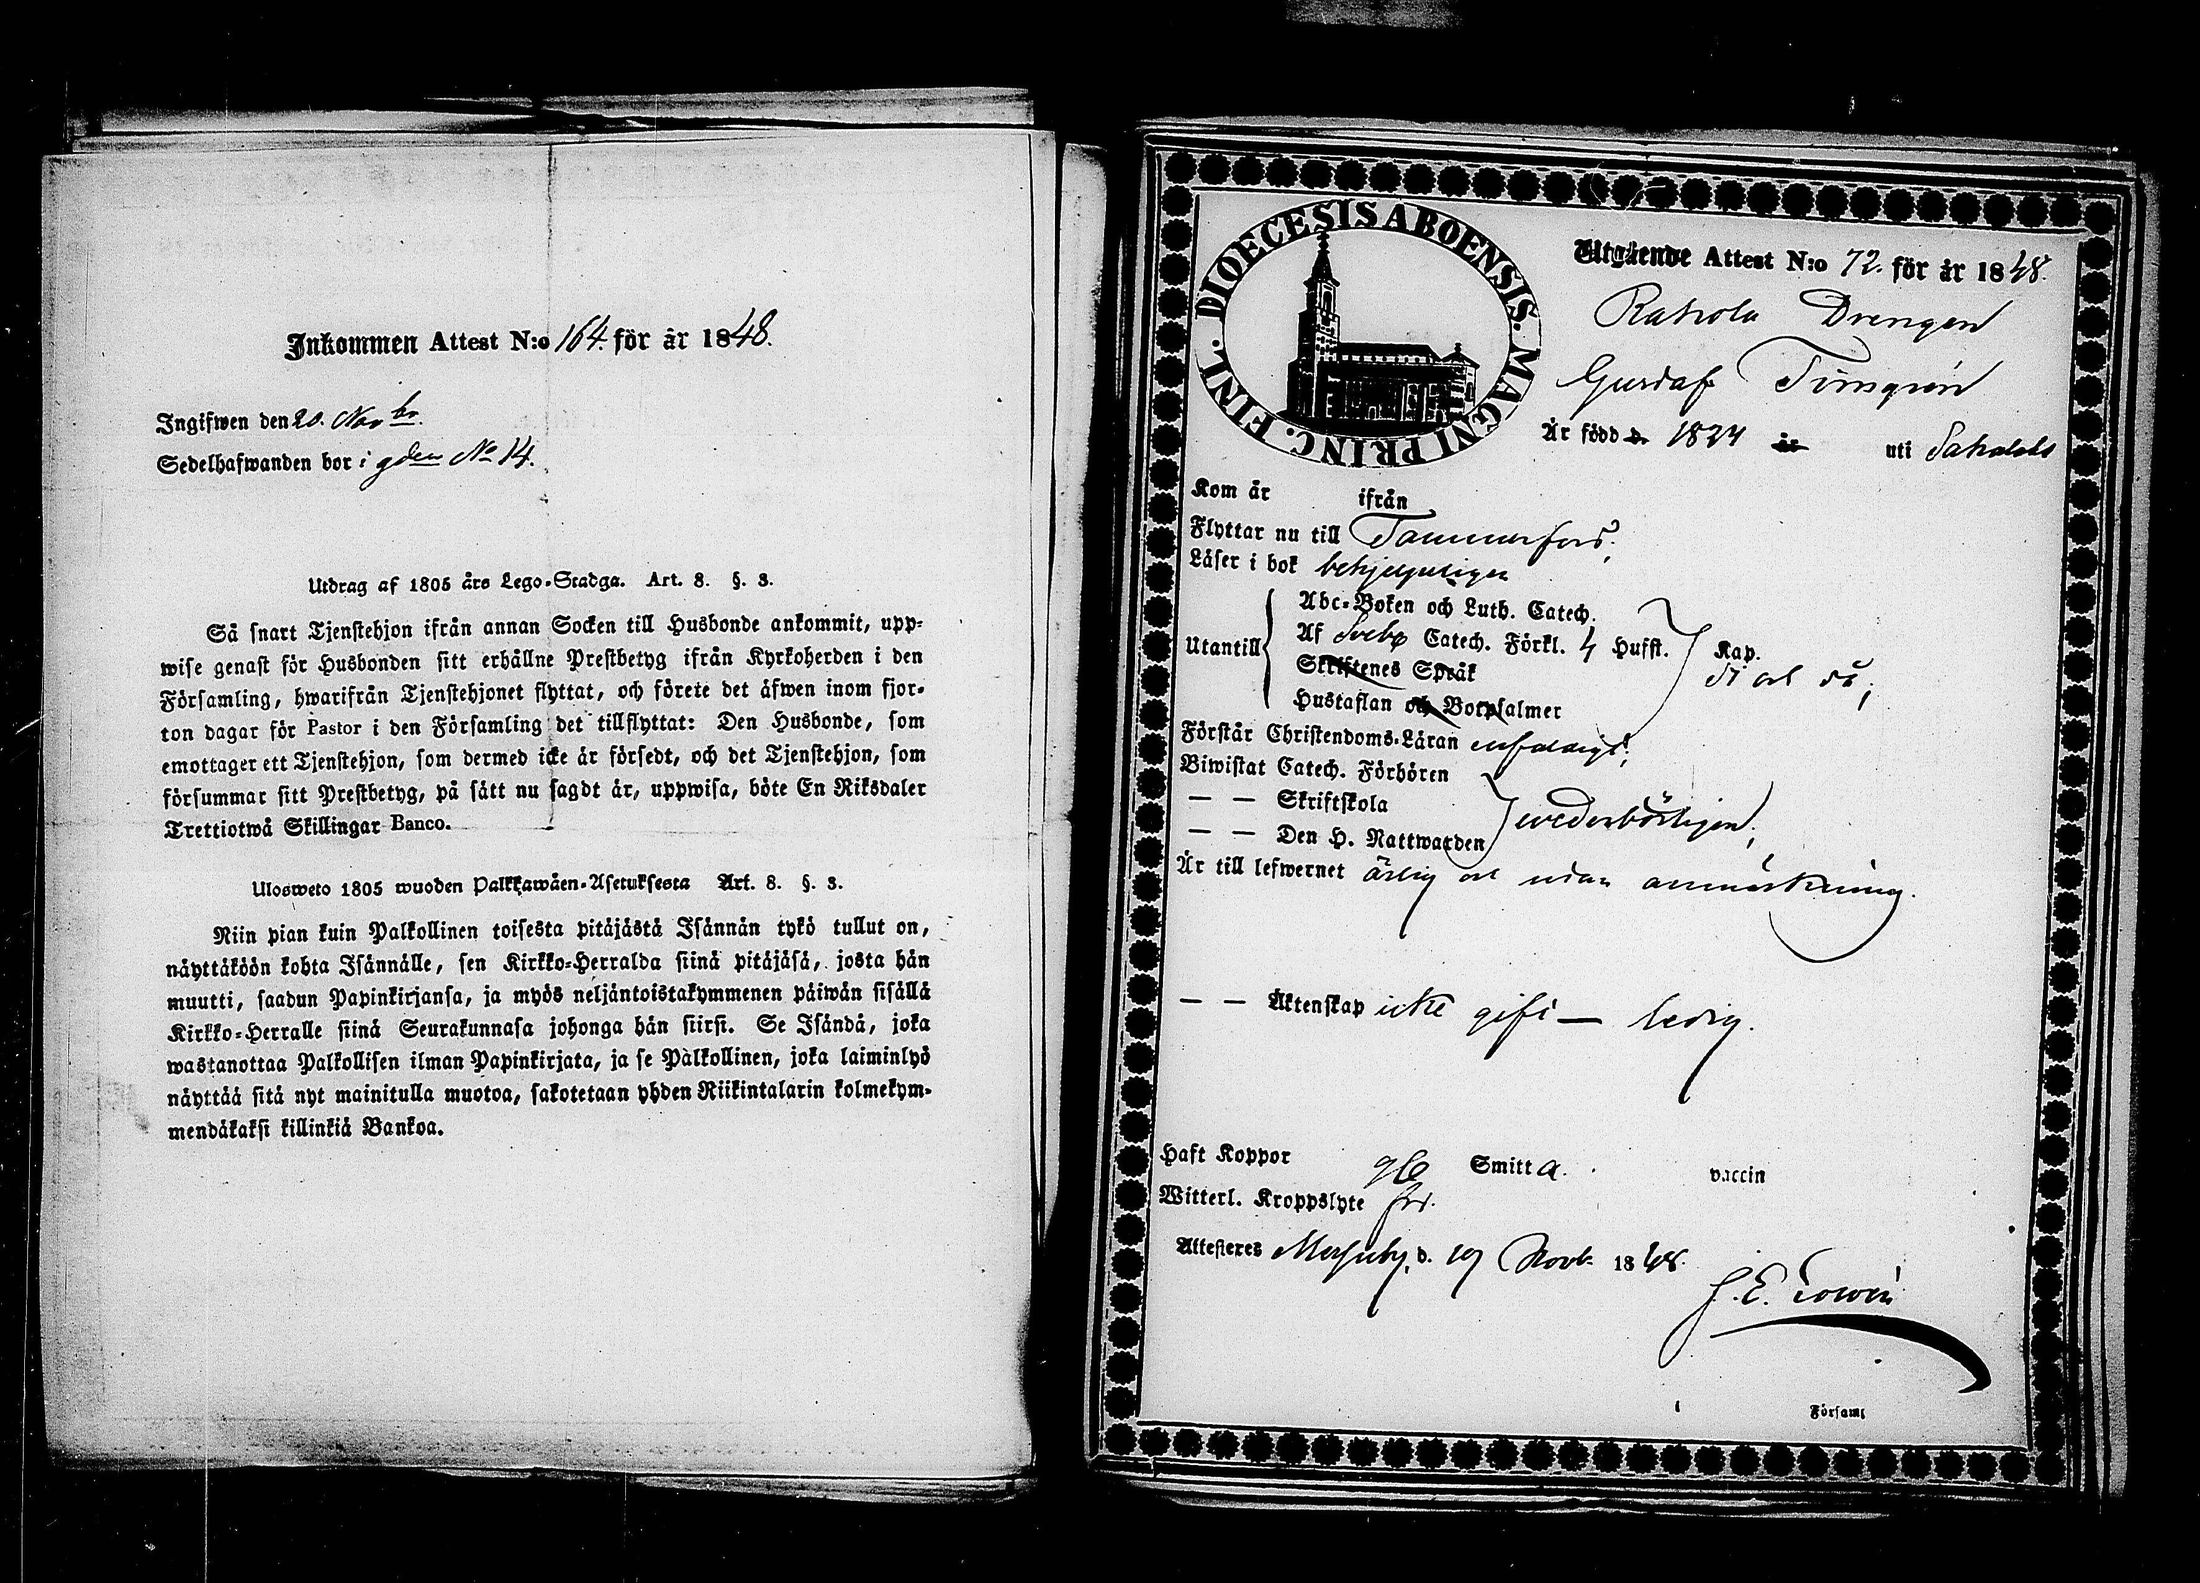 Inkommen Attest N:o 164. för år 1848.
Ingifwen den 20. Nov br.
Sedelhafwanden bor i gden No 14.
Utdrag af 1805 års Lego-Stadga. Art. 8. §. 3.
Så snart Tjenstehjon ifrån annan Socken till Husbonde ankommit, upp-
wise genast för Husbonden sitt erhållne Prestbetyg ifrån Kyrkoherden i den
Församling, hwarifrån Tjenstehjonet flyttat, och förete det äfwen inom fjor-
ton dagar för Pastor i den Församling det tillflyttat: Den Husbonde, som
emottager ett Tjenstehjon, som dermed icke är försedt, och det Tjenstehjon, som
försummar sitt Prestbetyg, på sätt nu sagdt är, uppwisa, böte En Riksdaler
Trettiotwå Skillingar Banco.
Ulosweto 1805 wuoden Palkkawäen-Asetuksesta Art. 8. §. 3.
Niin pian kuin Palkollinen toisesta pitäjästä Isännän tykö tullut on,
näyttäköön kohta Isännälle, sen Kirkko-Herralda siinä pitäjäsä, josta hän
muutti, saadun Papinkirjansa, ja myös neljäntoistakymmenen päiwän sisällä
Kirkko-Herralle siinä Seurakunnasa johonga hän siirsi. Se Isändä, joka
wastanottaa Palkollisen ilman Papinkirjata, ja se Palkollinen, joka laiminlyö
näyttää sitä nyt mainitulla muotoa, sakotetaan yhden Riikintalarin kolmekym-
mendäkaksi killinkiä Bankoa.
DIOECESIS ABOENSIS. MAGNI PRINC. FINL.
Utgående Attest N:o 72. för år 1848.
Drengen
Gustaf
Är född d. 18 4 år uti
Kom år ifrån
Flyttar nu till Tammerfors;
Läser i bok behjelpligen
Utantill
Abc-Boken och Luth. Catech.
Af Svebe Catech. Förkl. 4 Hufst. Kap.
Skriftenes Språk
Hustaflan och Botpsalmer
Förstår Christendoms-Läran enfaldigt;
Biwistat Catech. Förhören
— — Skriftskola
— — Den H. Nattwarden wederbörligen;
Är till lefwernet ärlig och utan anmärkning.
— — Äktenskap icke gift — ledig.
Haft Koppor Smitta. vaccin
Witterl. Kroppslyte fri.
Attesteres d. 19 Novb. 1848.
Församl